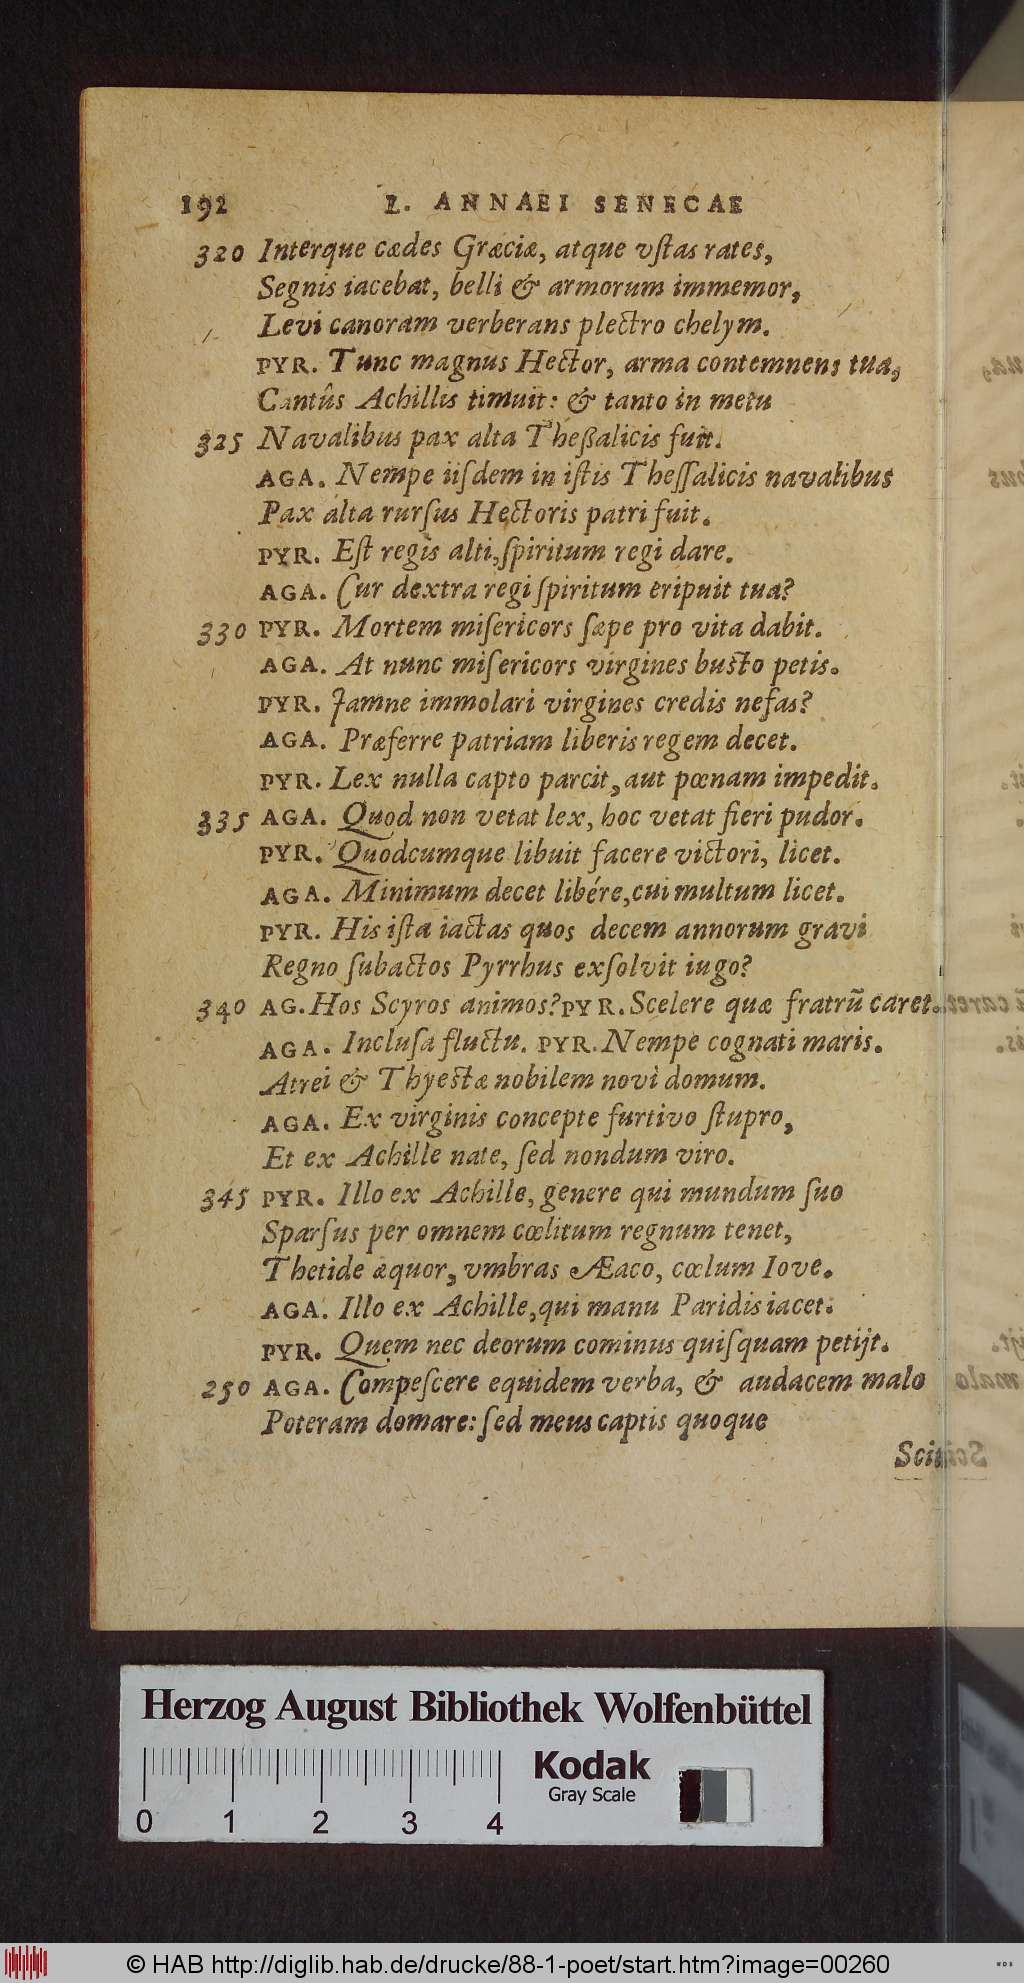 192 L. ANNAEI SENECAE
320 Interque cædes Græciæ, atque vſtas rates,
Segnis iacebat, belli & armorum immemor,
Levi canoram verberans plectro chelym.
PYR. Tunc magnus Hector, arma contemnens tua,
Cantûs Achillis timuit: & tanto in metu
325 Navalibus pax alta Theßalicis fuit.
AGA. Nempe iiſdem in iſtis Theſſalicis navalibus
Pax alta rurſus Hectoris patri fuit.
PYR. Eſt regis alti, ſpiritum regi dare.
AGA. Cur dextra regi ſpiritum eripuit tua?
330 PYR. Mortem miſericors ſæpe pro vita dabit.
AGA. At nunc miſericors virgines busto petis.
PYR. Jamne immolari virgines credis nefas?
AGA. Præferre patriam liberis regem decet.
PYR. Lex nulla capto parcit, aut pœnam impedit.
335 AGA. Quod non vetat lex, hoc vetat fieri pudor.
PYR. Quodcumque libuit facere victori, licet.
AGA. Minimum decet libére, cui multum licet.
PYR. His iſta iactas quos decem annorum gravi
Regno ſubactos Pyrrhus exſolvit iugo?
340 AG. Hos Scyros animos? PYR. Scelere quæ fratrũ caret.
AGA. Incluſa fluctu. PYR. Nempe cognati maris.
Atrei & Thyestæ nobilem novì domum.
AGA. Ex virginis concepte furtivo ſtupro,
Et ex Achille nate, ſed nondum viro.
345 PYR. Illo ex Achille, genere qui mundum ſuo
Sparſus per omnem cœlitum regnum tenet,
Thetide æquor, vmbras Æaco, cœlum Iove.
AGA. Illo ex Achille, qui manu Paridis iacet.
PYR. Quem nec deorum cominus quiſquam petijt.
250 AGA. Compeſcere equidem verba, & audacem malo
Poteram domare: ſed meus captis quoque
Herzog August Bibliothek Wolfenbüttel
Kodak
Gray Scale
0 1 2 3 4
© HAB http://diglib.hab.de/drucke/88-1-poet/start.htm?image=00260